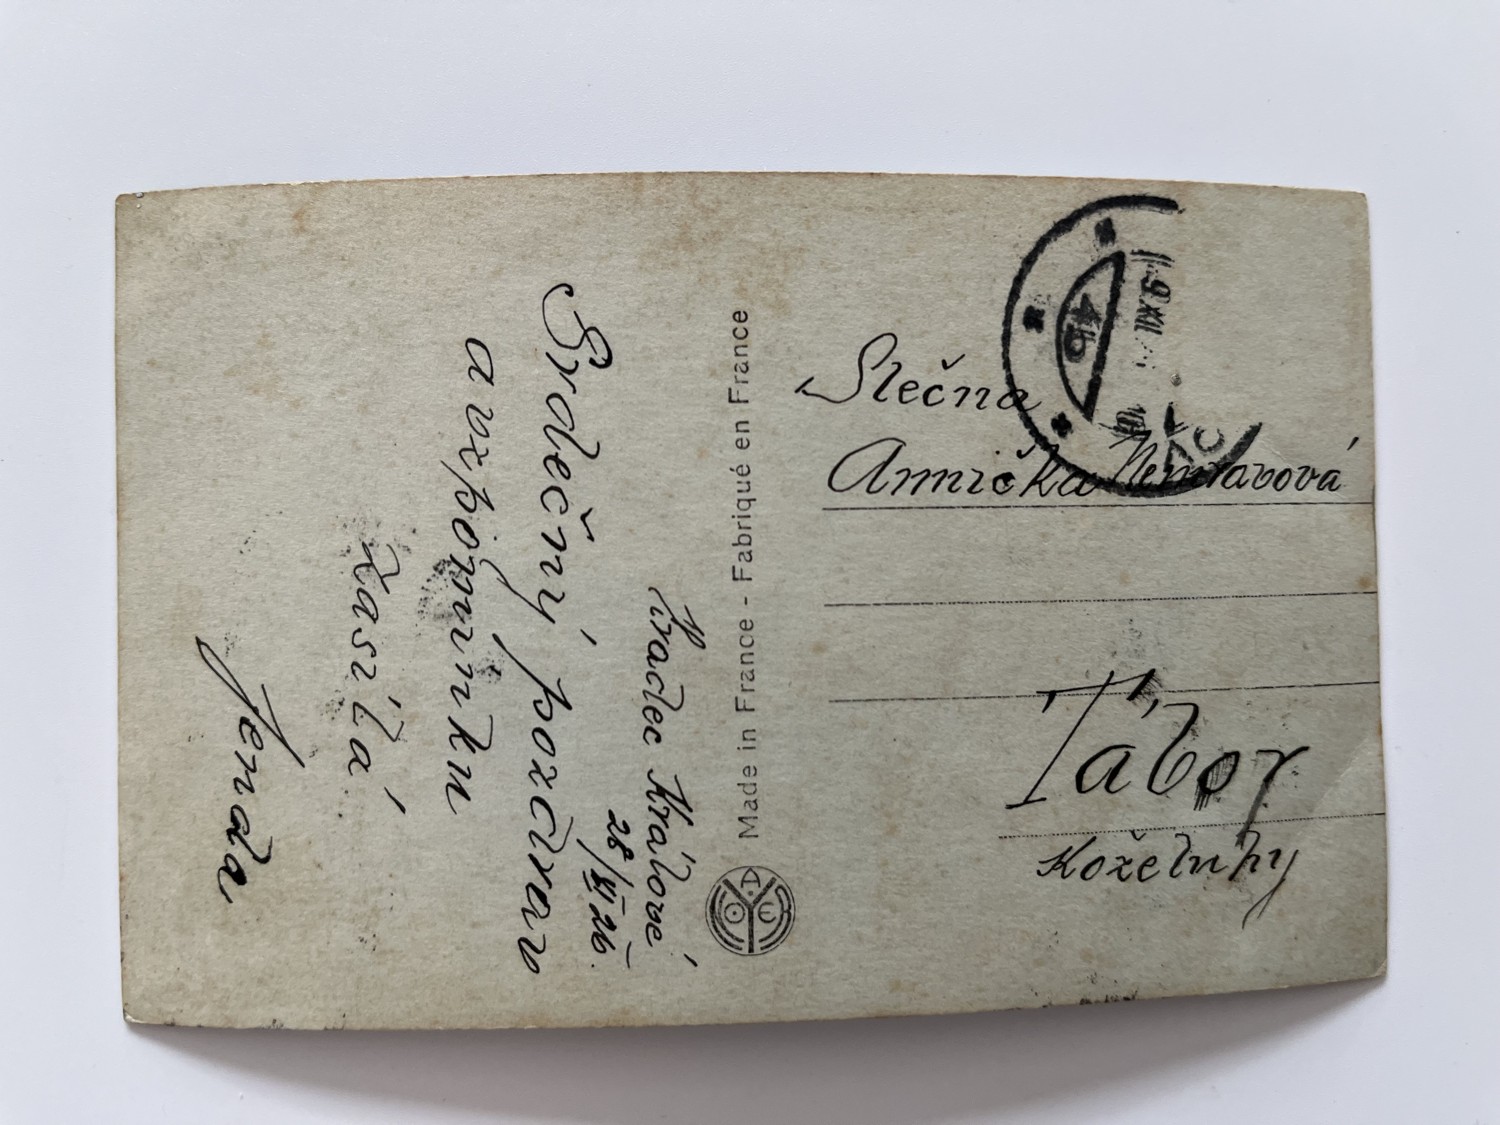 Hradec Králové
28/XI 26.
Srdečný pozdrav
a vzpomínku
zasílá
Jenda
Made in France - Fabriqué en France
Slečna
Annička
Tábor
Koželuhy
4b
9 XII